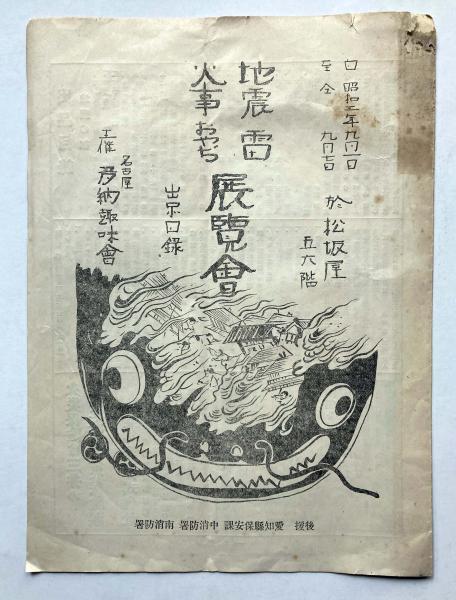 自 昭和二年九月一日
至 仝 九月
於松坂屋
五六階
地震 雷
火事 おやぢ
展覽會
出品目錄
主催
名古屋
多納趣味會
後援 愛知縣保安課 中消防署 南消防署